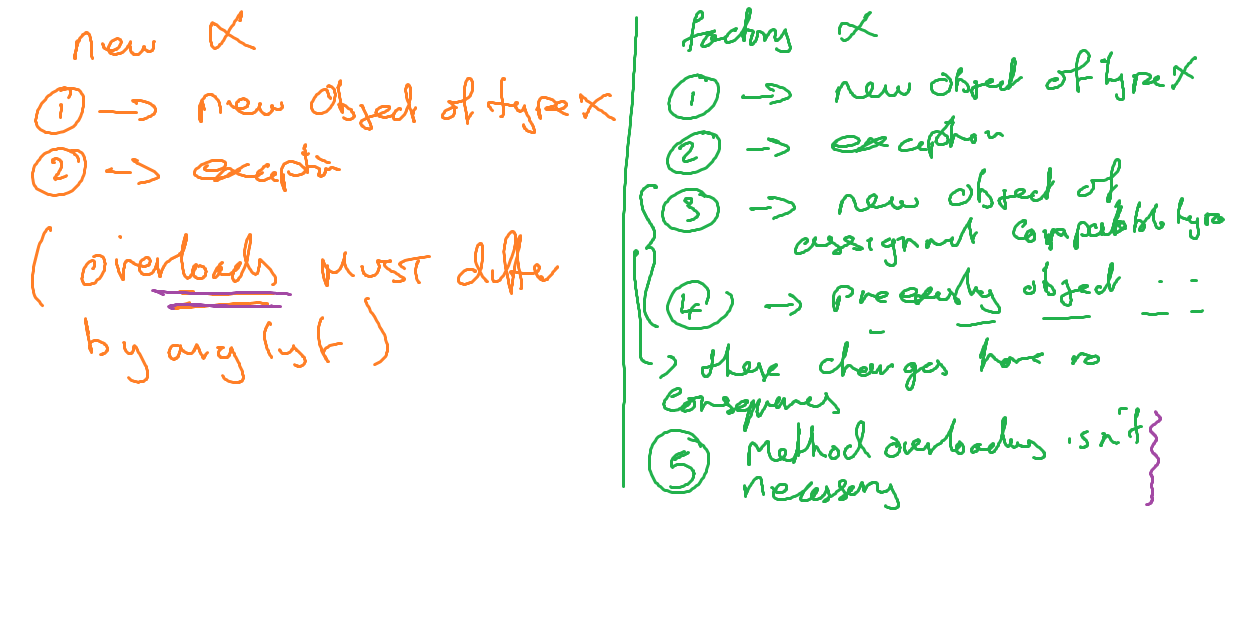 new X
① → new Object of type X
② → exception
(overloads MUST differ
by arg list)
factory X
① → new object of type X
② → exception
③ → new object of
assignment compatible type
④ → object
> these changes have no
consequences
⑤ Method overloading isn't
necessary